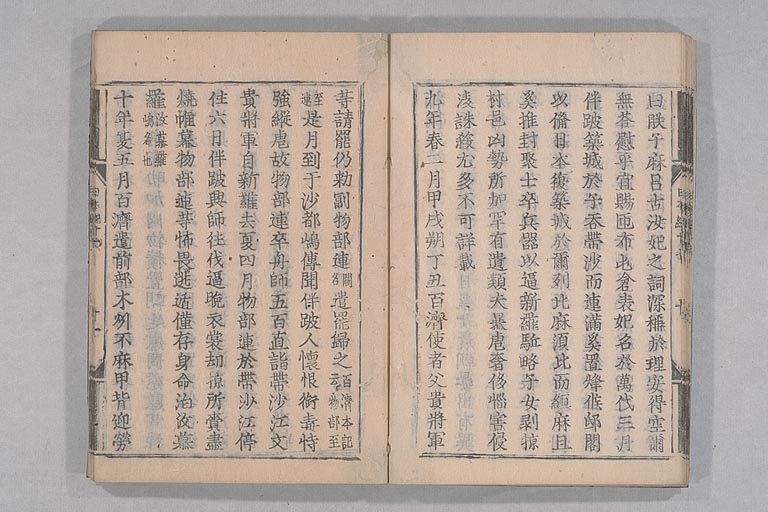 曰朕子麻呂古汝妃之詞深稱於理安得空爾
無荅慰乎宜賜匝布屯倉表妃名於萬代三月
伴跛築城於子吞帶沙而連滿奚置烽候邸閣
以備日本復築城於爾列比麻須比而絚麻且
奚推封聚士卒兵器以逼新羅駈略子女剥掠
村邑凶勢所加罕有遺類夫暴虐奢侈惱害侵
淩誅殺尤多不可詳載
九年春二月甲戌朔丁丑百濟使者父貴將軍
等請罷仍勅副物部連闕名遣罷歸之百濟本記云物部至
至連是月到于沙都嶋傳聞伴跛人懷恨銜毒恃
強縱虐故物部連卒舟師五百直詣帶沙江文
貴將軍自新羅去夏四月物部連於帶沙江停
住六日伴跛興師往伐逼脫衣裳劫掠所賷盡
燒帷幕物部連等怖畏逃遁僅存身命泊汶慕
羅汶慕羅嶋名也
十年夏五月百濟遣前部木刕不麻甲背迎勞